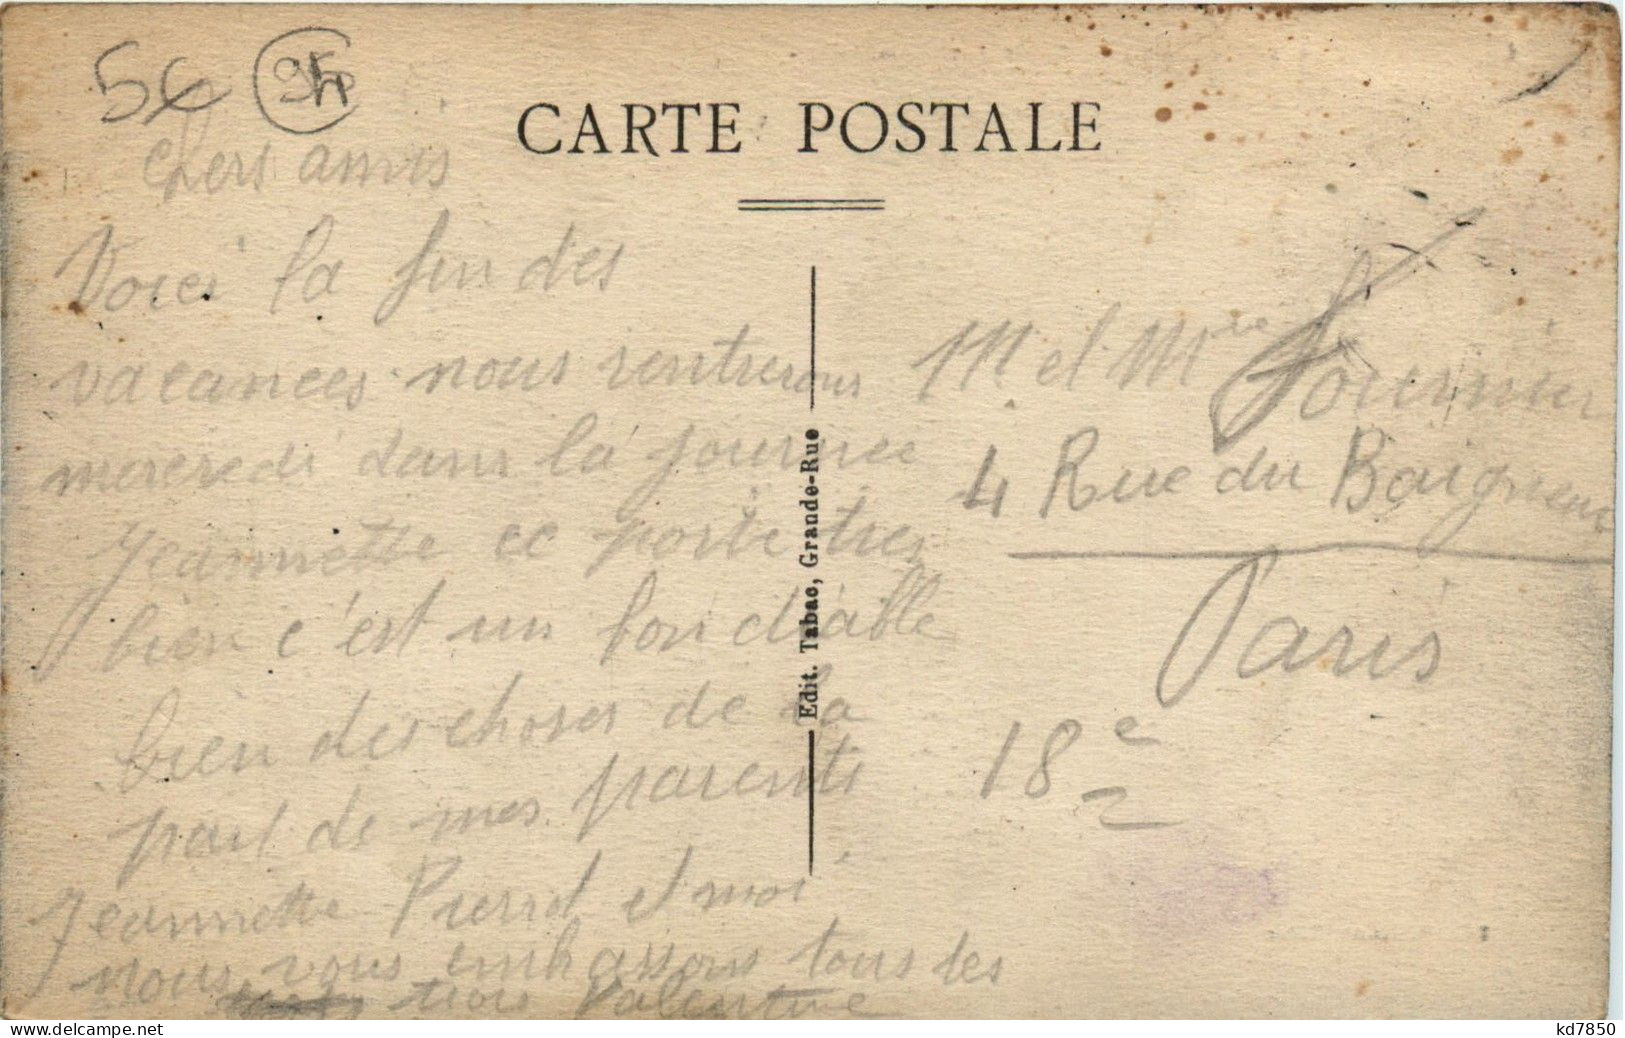 5€ 95
CARTE POSTALE
chers amis
Voici la fin des
vacances nous rentrerons
mercredi dans la journee
Jeannette ce porte tres
bien c'est un bon diable
bien des choses de la
part de mes parents
Jeannette Pierrot et moi
nous vous embrassons tous les
trois Valentine
Edit. Tabac, Grande-Rue
M et Mme Fournier
4 Rue du Baigneur
Paris
18e
delcampe.net
kd7850